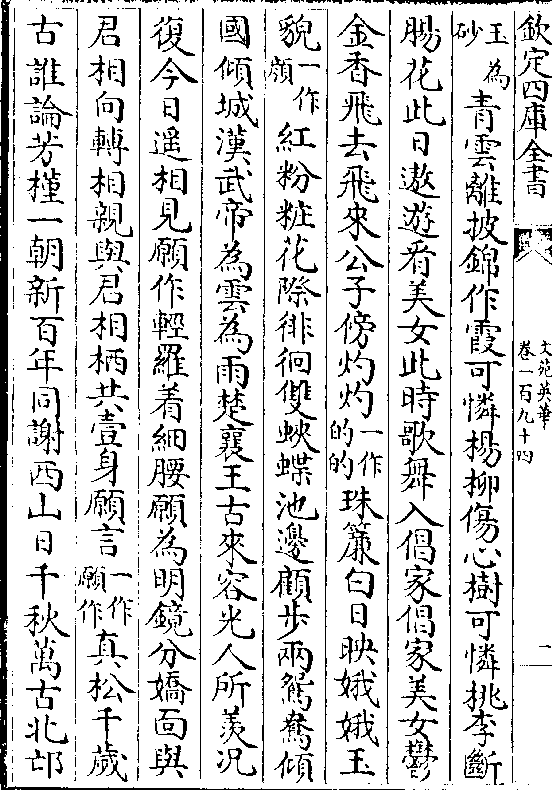 欽定四庫全書
文苑英華
卷一百九十四
二
玉砂為青雲離披錦作霞可憐楊柳傷心樹可憐桃李斷
腸花此日遨遊看美女此時歌舞入倡家倡家美女鬱
金香飛去飛來公子傍灼灼一作的的珠簾白日映娥娥玉
貌一作顔紅粉粧花際徘徊雙蛺蝶池邊顧步兩鴛鴦傾
國傾城漢武帝為雲為雨楚襄王古來容光人所羡况
復今日遥相見願作輕羅着細腰願為明鏡分嬌面與
君相向轉相親與君相栖共壹身願言一作願作真松千歲
古誰論芳槿一朝新百年同謝西山日千秋萬古北邙